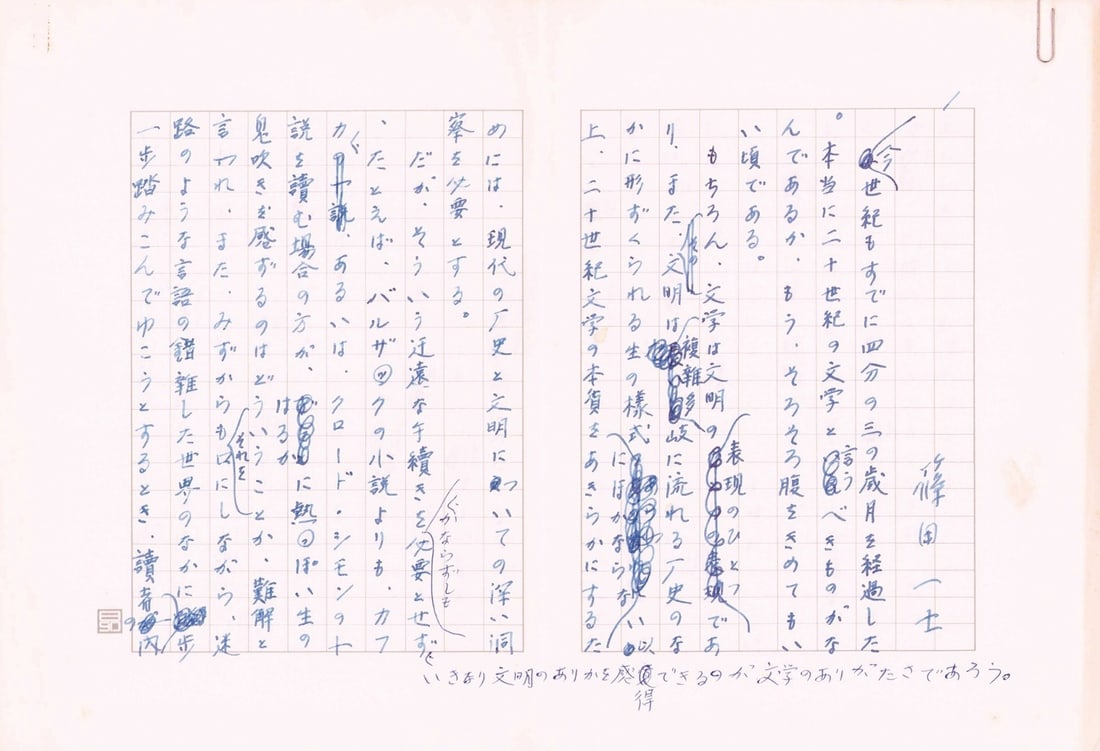 篠田一士
今世紀もすでに四分の三の歳月を経過した
。本当に二十世紀の文学と言うべきものがな
んであるか、もう、そろそろ腹をきめてもい
い頃である。
もちろん、文学は文明の表現のひとつであ
り、また、文明は複雑多岐に流れる歴史のな
かに形ずくられる生の様式にほかならない以
上、二十世紀文学の本質をあきらかにするた
めには、現代の歴史と文明についての深い洞
察を必要とする。
だが、そういう迂遠な手續きをかならずしも必要とせず
いきなり文明のありかを感得できるのが文学のありがたさであろう。
、たとえば、バルザックの小説よりも、カフ
カ、あるいは、クロード・シモンの小
説を讀む場合の方が、はるかに熱っぽい生の
息吹きを感ずるのはどういうことか、難解と
言われ、また、みずからもそれを口にしながら、迷
路のような言語の錯雑した世界のなかに歩
一歩踏みこんでゆこうとするとき、讀者の内